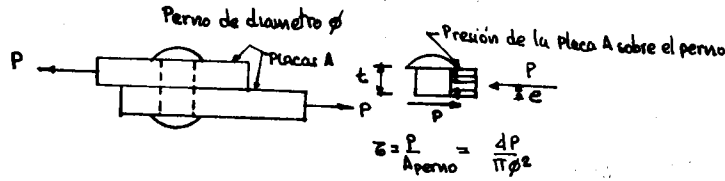 Perno de diametro φ
P
Placas A
P
Presión de la placa A sobre el perno
t
P
e
P
τ = P / Aperno = 4P / πφ²